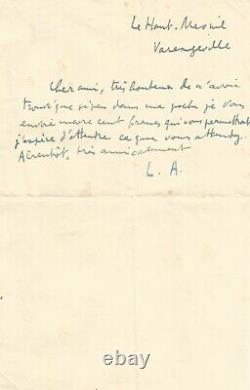 Le Haut-Mesnil
Varengeville
Cher ami, très honteux de n'avoir
trouvé que si peu dans ma poche je vous
envoie mare cent francs qui vous permettront
j'espère d'attendre ce que vous attendez.
A bientôt, très amicalement
L. A.
ebay